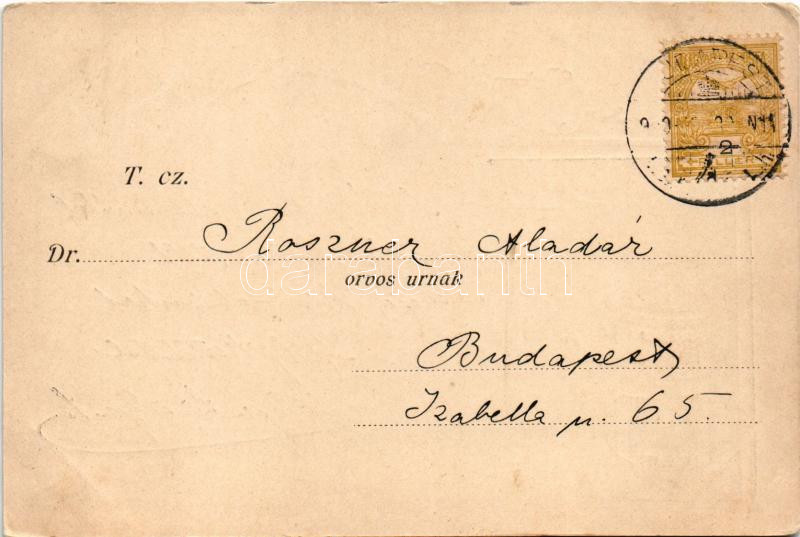 T. cz.
Dr. Roszner Aladár
orvos urnak
Budapest,
Izabella u. 65.
2
darabanth